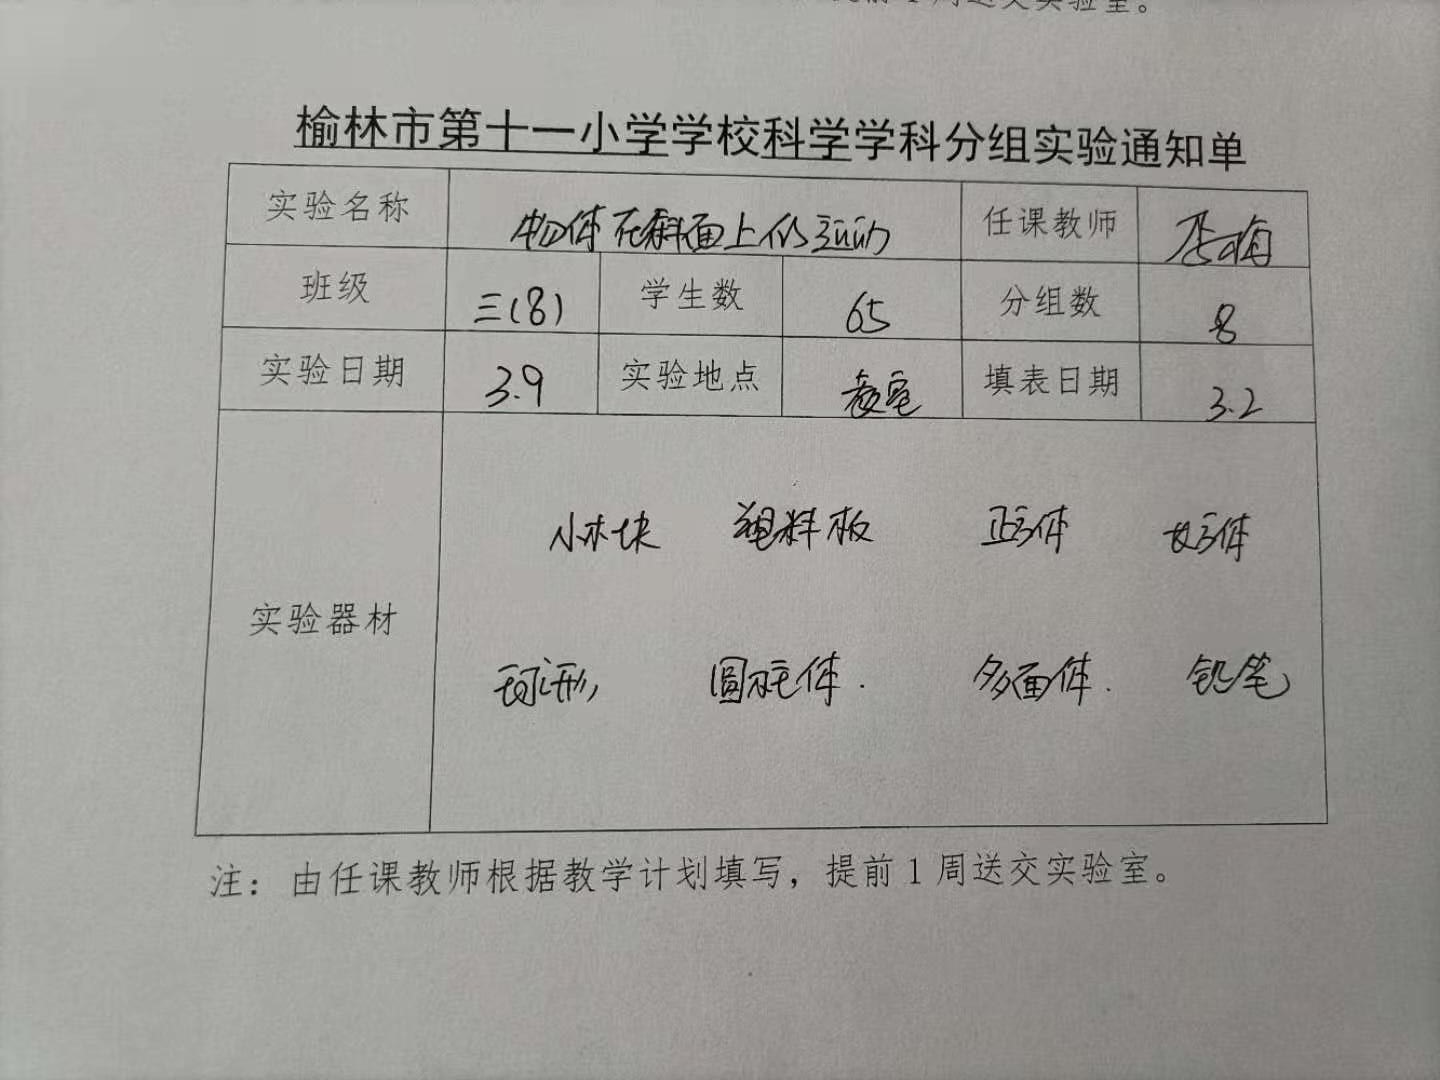 前1周送交实验室。
榆林市第十一小学学校科学学科分组实验通知单
实验名称 物体在斜面上的运动 任课教师
班级 三(8) 学生数 65 分组数 8
实验日期 3.9 实验地点 教室 填表日期 3.2
小木块 塑料板 正方体 长方体
实验器材
球形 圆柱体. 多面体. 铅笔
注：由任课教师根据教学计划填写，提前1周送交实验室。